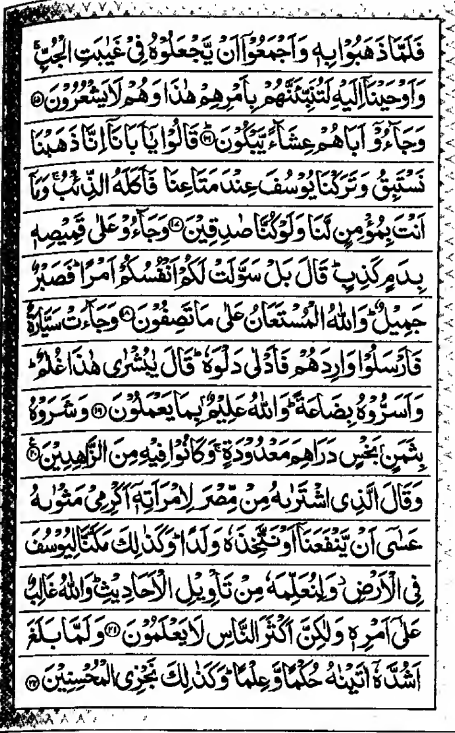 فَلَمَّا ذَهَبُوۡا بِهٖ وَاَجۡمَعُوۡۤا اَنۡ يَّجۡعَلُوۡهُ فِىۡ غَيٰبَتِ الۡجُبِّ‌ۚ
وَاَوۡحَيۡنَاۤ اِلَيۡهِ لَـتُنَـبِّئَنَّهُمۡ بِاَمۡرِهِمۡ هٰذَا وَهُمۡ لَا يَشۡعُرُوۡنَ ۱۵
وَجَآءُوۡۤ اَبَاهُمۡ عِشَآءً يَّبۡكُوۡنَؕ ۱۶ قَالُوۡا يٰۤاَبَانَاۤ اِنَّا ذَهَبۡنَا
نَسۡتَبِقُ وَتَرَكۡنَا يُوۡسُفَ عِنۡدَ مَتَاعِنَا فَاَكَلَهُ الذِّئۡبُ‌ۚ وَمَاۤ
اَنۡتَ بِمُؤۡمِنٍ لَّنَا وَلَوۡ كُنَّا صٰدِقِيۡنَ ۱۷ وَجَآءُوۡ عَلٰى قَمِيۡصِهٖ
بِدَمٍ كَذِبٍ‌ؕ قَالَ بَلۡ سَوَّلَتۡ لَـكُمۡ اَنۡفُسُكُمۡ اَمۡرًا‌ؕ فَصَبۡرٌ
جَمِيۡلٌ‌ؕ وَاللّٰهُ الۡمُسۡتَعَانُ عَلٰى مَا تَصِفُوۡنَ ۱۸ وَجَآءَتۡ سَيَّارَةٌ
فَاَرۡسَلُوۡا وَارِدَهُمۡ فَاَدۡلٰى دَلۡوَهٗ‌ؕ قَالَ يٰبُشۡرٰى هٰذَا غُلٰمٌ‌ؕ
وَاَسَرُّوۡهُ بِضَاعَةً‌ؕ وَاللّٰهُ عَلِيۡمٌۢ بِمَا يَعۡمَلُوۡنَ ۱۹ وَشَرَوۡهُ
بِثَمَنٍۢ بَخۡسٍ دَرَاهِمَ مَعۡدُوۡدَةٍ‌ۚ وَكَانُوۡا فِيۡهِ مِنَ الزّٰهِدِيۡنَ ۲۰
وَقَالَ الَّذِى اشۡتَرٰٮهُ مِنۡ مِّصۡرَ لِامۡرَاَتِهٖۤ اَكۡرِمِىۡ مَثۡوٰٮهُ
عَسٰٓى اَنۡ يَّنۡفَعَنَاۤ اَوۡ نَـتَّخِذَهٗ وَلَدًا‌ؕ وَكَذٰلِكَ مَكَّنَّا لِيُوۡسُفَ
فِى الۡاَرۡضِ وَلِنُعَلِّمَهٗ مِنۡ تَاۡوِيۡلِ الۡاَحَادِيۡثِ‌ؕ وَاللّٰهُ غَالِبٌ
عَلٰٓى اَمۡرِهٖ وَلٰـكِنَّ اَكۡثَرَ النَّاسِ لَا يَعۡلَمُوۡنَ ۲۱ وَلَمَّا بَلَغَ
اَشُدَّهٗۤ اٰتَيۡنٰهُ حُكۡمًا وَّعِلۡمًا‌ؕ وَكَذٰلِكَ نَجۡزِى الۡمُحۡسِنِيۡنَ ۲۲